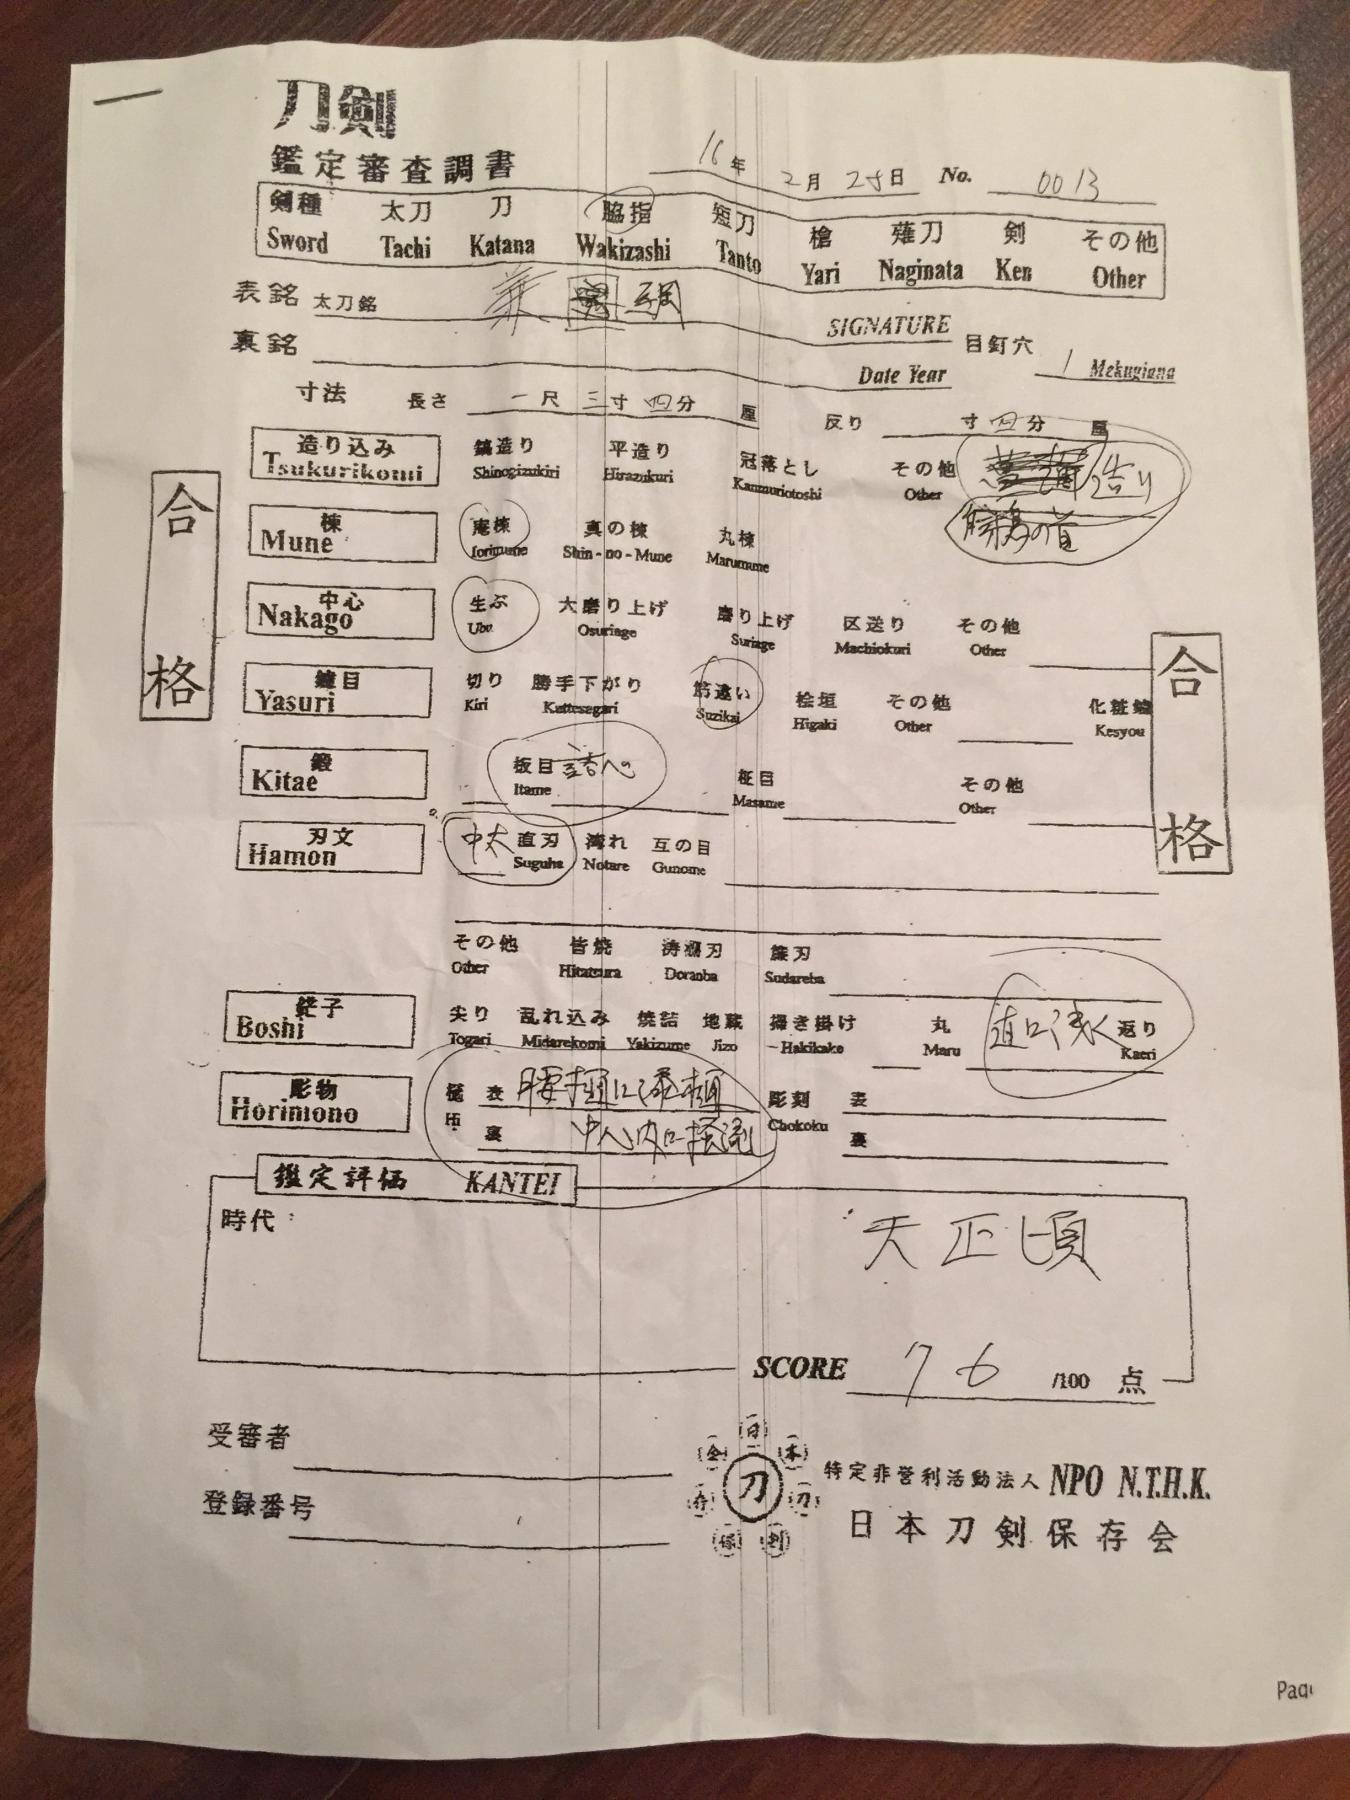 刀剣
鑑定審査調書
16年 2月 28日 No. 0013
剣種 太刀 刀 脇指 短刀 槍 薙刀 剣 その他
Sword Tachi Katana Wakizashi Tanto Yari Naginata Ken Other
表銘 太刀銘 兼 SIGNATURE
裏銘 Date Year 目釘穴 1 Mekugiana
寸法 長さ 一尺 三寸 四分 厘 反り 寸 四分 厘
造り込み 鎬造り 平造り 冠落とし その他 造り
Tsukurikomi Shinogizukiri Hirazukuri Kanmuriotoshi Other
棟 庵棟 真の棟 丸棟 の首
Mune Iorimune Shin-no-Mune Marumune
中心 生ぶ 大磨り上げ 磨り上げ 区送り その他
Nakago Ubu Osuriage Suriage Machiokuri Other
鑢目 切り 勝手下がり 筋違い 桧垣 その他 化粧鑢
Yasuri Kiri Kattesagari Suzikai Higaki Other Kesyou
鍛 板目 詰む 柾目 その他
Kitae Itame Masame Other
刃文 中太 直刃 湾れ 互の目
Hamon Suguha Notare Gunome
その他 皆焼 涛瀾刃 簾刃
Other Hitatsura Doranba Sudareba
鋩子 尖り 乱れ込み 焼詰 地蔵 掃き掛け 丸 直ロ浅く 返り
Boshi Togari Midarekomi Yakizume Jizo Hakikake Maru Kaeri
彫物 樋 表 腰樋に添樋 彫刻 表
Horimono Hi 裏 中心内に掻流 Chokoku 裏
合格
合格
鑑定評価 KANTEI
時代: 天正頃
SCORE 76 /100 点
受審者
登録番号
日本刀剣保存会
刀
特定非営利活動法人 NPO N.T.H.K.
日本刀剣保存会